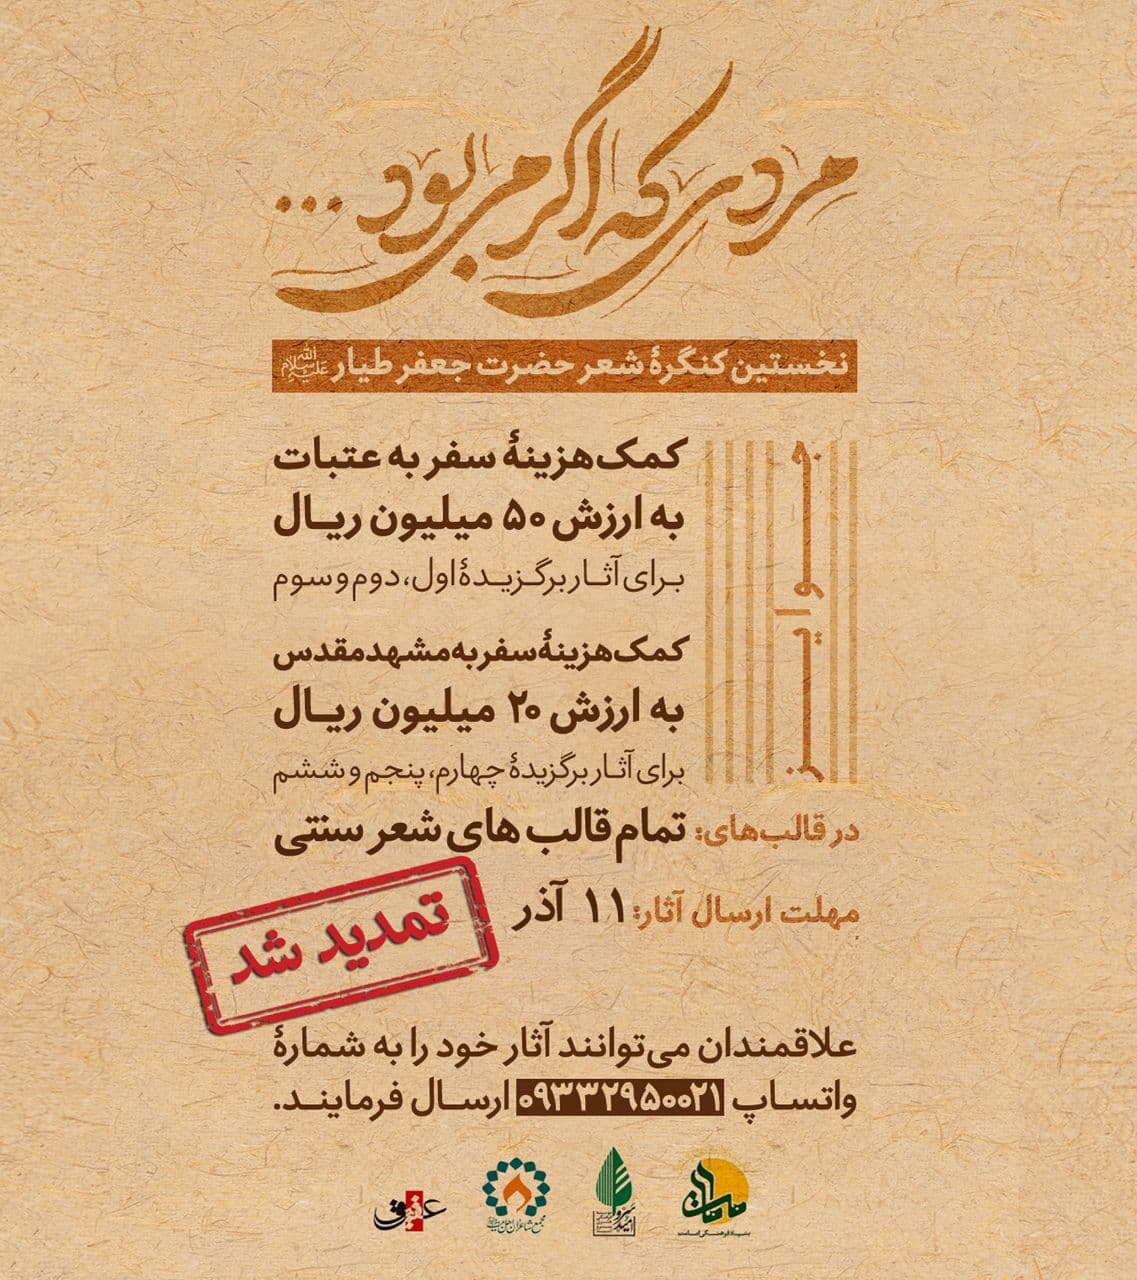 مردی که اگر می بود...
نخستین کنگرهٔ شعر حضرت جعفر طیار سلام الله علیه
جوایز
کمک‌هزینهٔ سفر به عتبات
به ارزش ۵۰ میلیون ریال
برای آثار برگزیدهٔ اول، دوم و سوم
کمک‌هزینهٔ سفر به مشهد مقدس
به ارزش ۲۰ میلیون ریال
برای آثار برگزیدهٔ چهارم، پنجم و ششم
در قالب‌های: تمام قالب های شعر سنتی
مهلت ارسال آثار: ۱۱ آذر
تمدید شد
علاقمندان می‌توانند آثار خود را به شمارهٔ
واتساپ ۰۹۳۳۲۹۵۰۰۲۱ ارسال فرمایند.
بنیاد فرهنگی امامت
سرو امید
مجمع شاعران اهل بیت